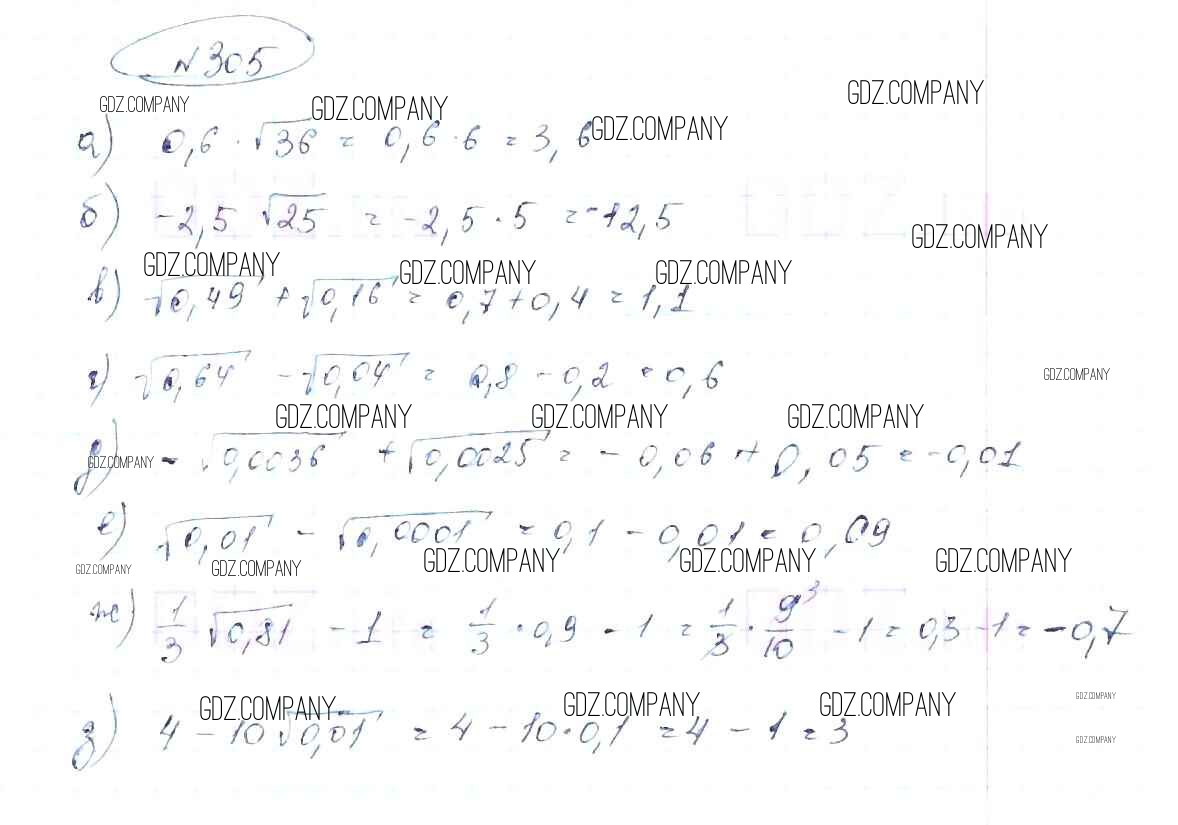 №305
GDZ.COMPANY GDZ.COMPANY GDZ.COMPANY
а) 0,6 · √36 = 0,6 · 6 = 3,6 GDZ.COMPANY
б) -2,5 √25 = -2,5 · 5 = -12,5
GDZ.COMPANY
GDZ.COMPANY GDZ.COMPANY GDZ.COMPANY
в) √0,49 + √0,16 = 0,7 + 0,4 = 1,1
г) √0,64 - √0,04 = 0,8 - 0,2 = 0,6 GDZ.COMPANY
GDZ.COMPANY GDZ.COMPANY GDZ.COMPANY
д) GDZ.COMPANY - √0,0036 + √0,0025 = - 0,06 + 0,05 = -0,01
е) √0,01 - √0,0001 = 0,1 - 0,01 = 0,09
GDZ.COMPANY GDZ.COMPANY GDZ.COMPANY GDZ.COMPANY GDZ.COMPANY
ж) 1/3 √0,81 - 1 = 1/3 · 0,9 - 1 = 1/3 · 9³/10 - 1 = 0,3 - 1 = -0,7
GDZ.COMPANY GDZ.COMPANY GDZ.COMPANY GDZ.COMPANY
з) 4 - 10√0,01 = 4 - 10 · 0,1 = 4 - 1 = 3 GDZ.COMPANY